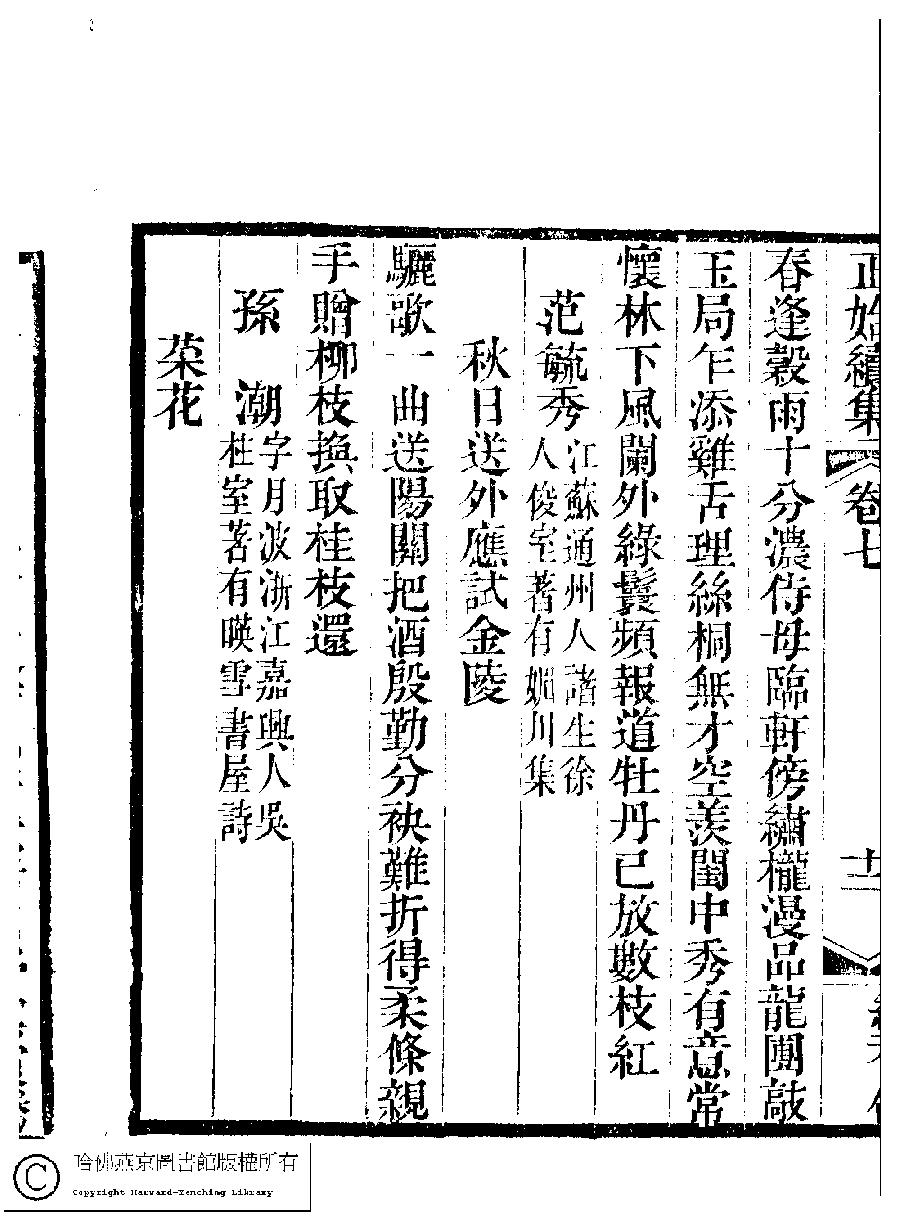 正始續集 卷七 十二
春逢穀雨十分濃侍母臨軒傍繡櫳漫品龍團敲
玉局乍添雞舌理絲桐無才空羨閨中秀有意常
懷林下風闌外綠鬟頻報道牡丹已放數枝紅
范毓秀 江蘇通州人諸生徐
人俊室著有媚川集
秋日送外應試金陵
驪歌一曲送陽關把酒殷勤分袂難折得柔條親
手贈柳枝換取桂枝還
孫 潮 字月波浙江嘉興人吳
杜室著有暎雪書屋詩
菜花
哈佛燕京圖書館版權所有
Copyright Harvard-Yenching Library